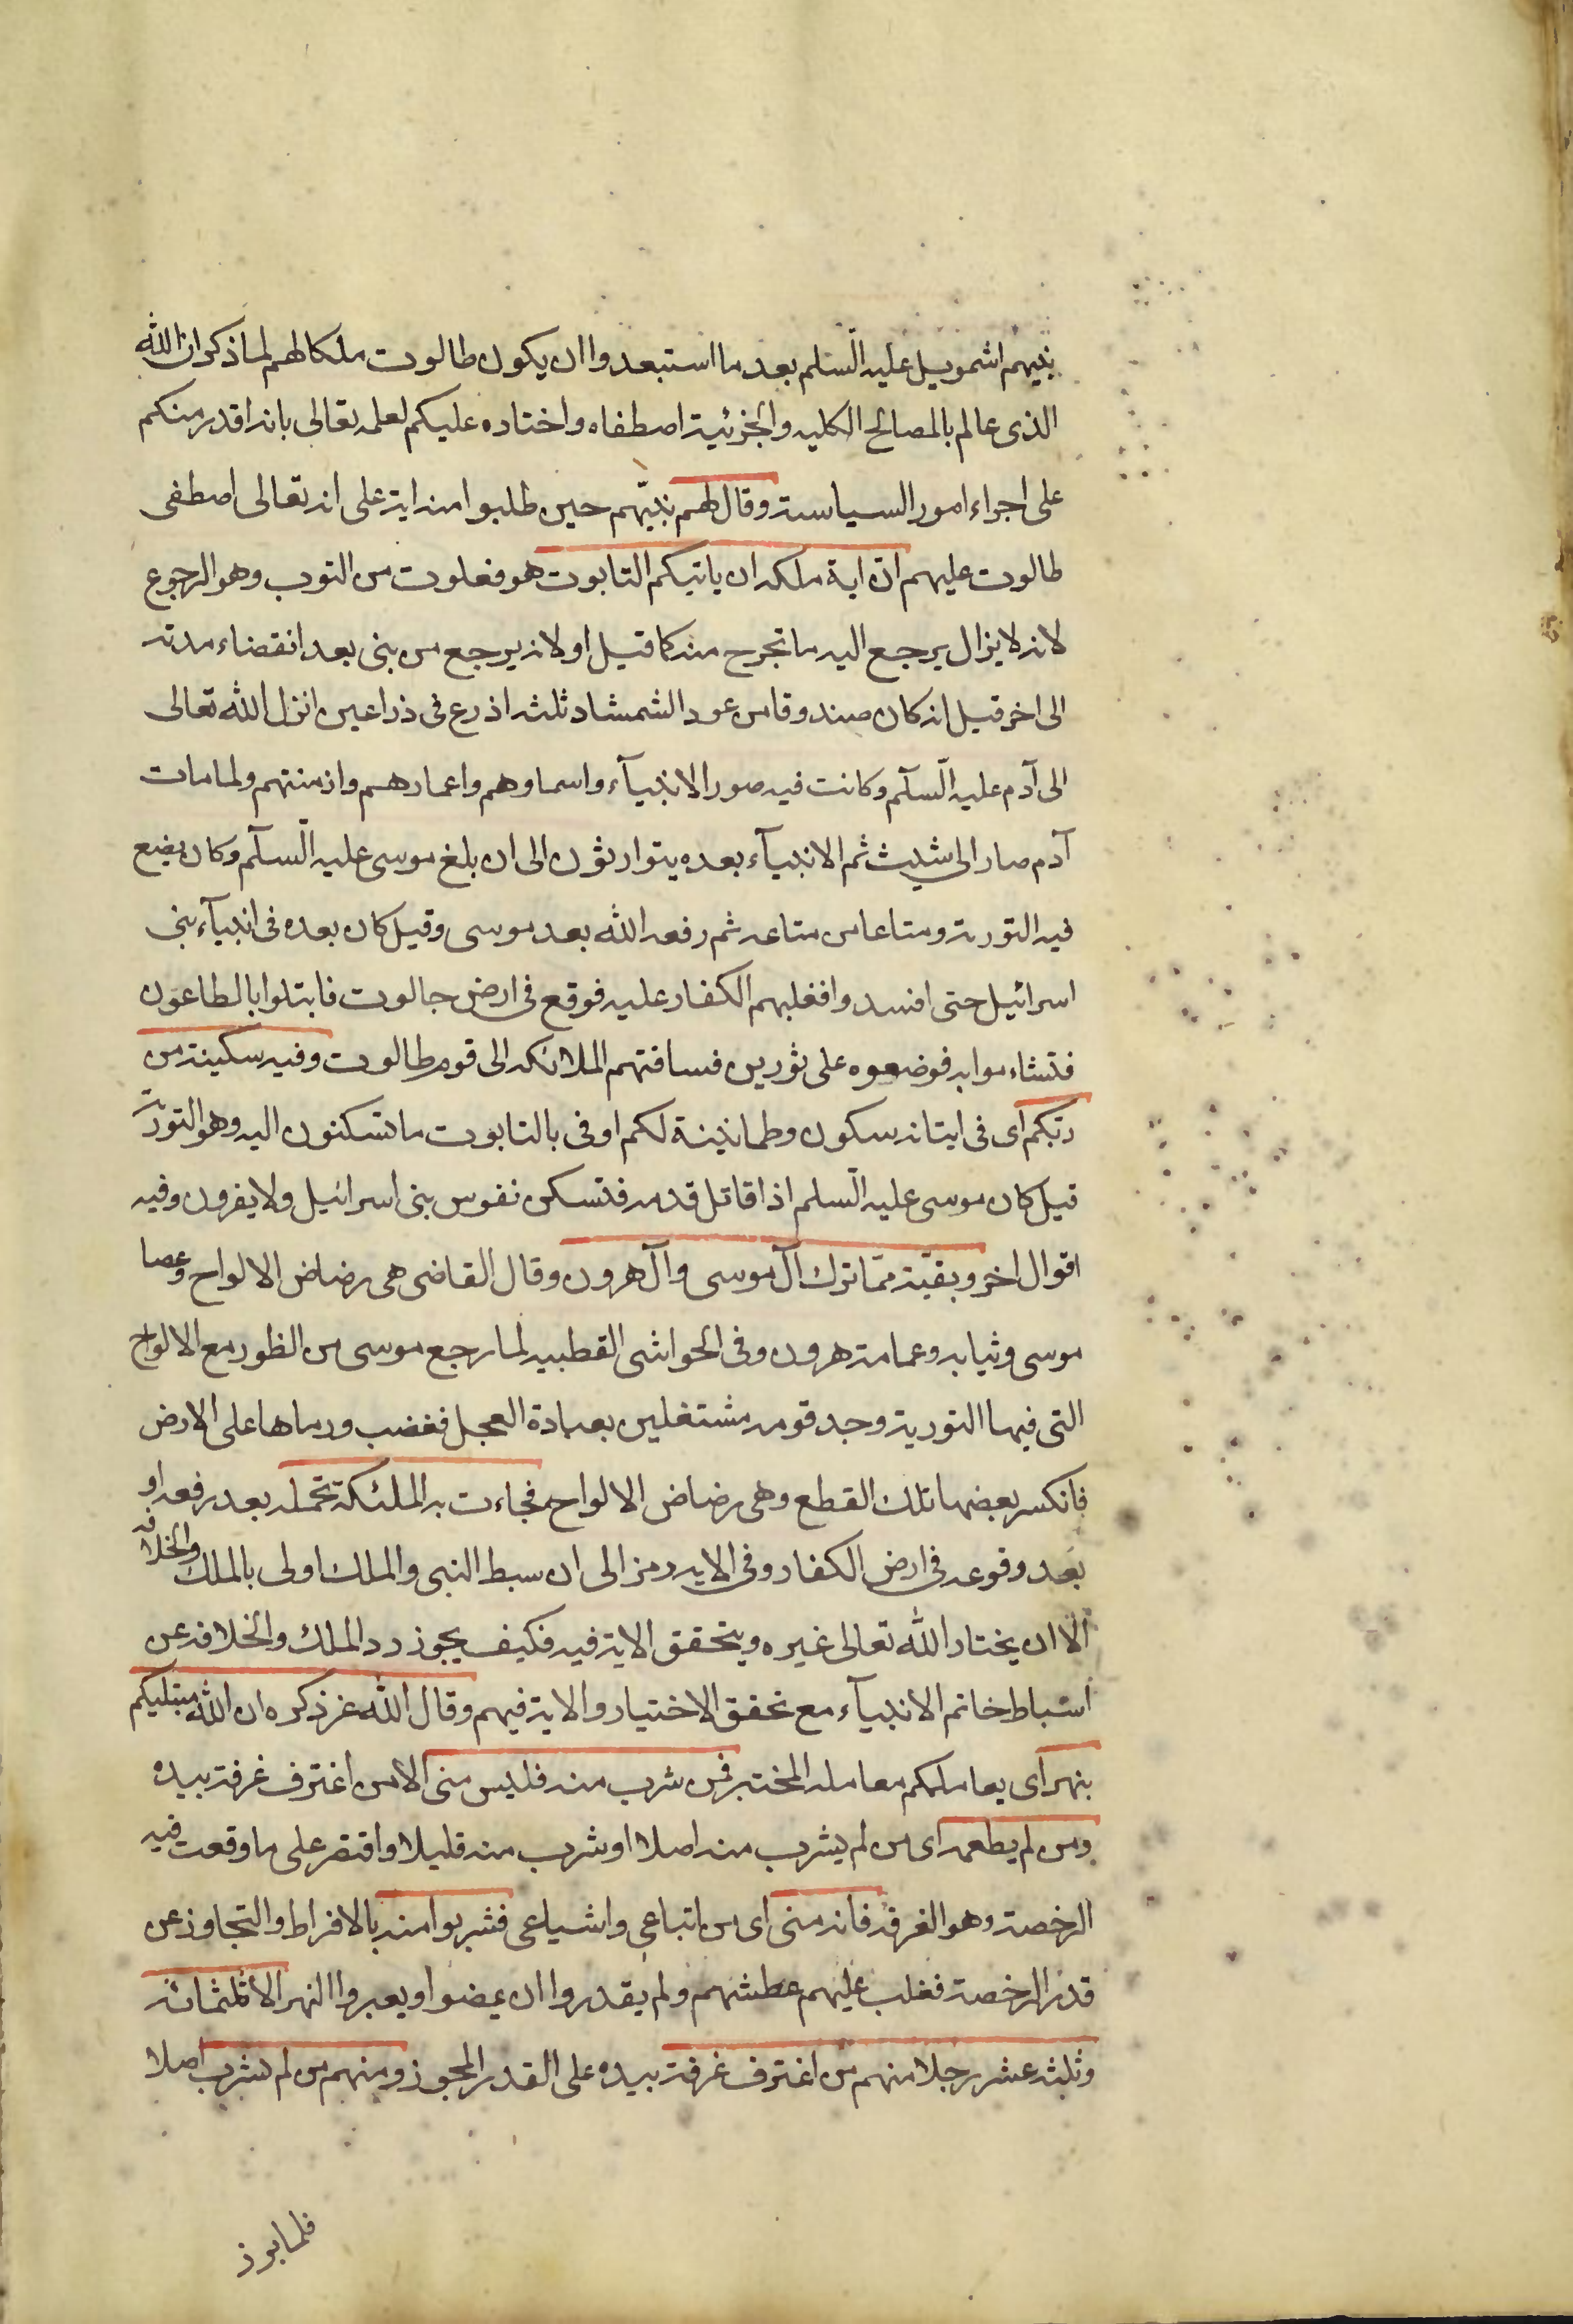 نبيهم اشمويل عليه السّلم بعد ما استبعدوا ان يكون طالوت ملكا لهم لما ذكر ان الله
الذى عالم بالمصالح الكليه والجزئية اصطفاه واختاره عليكم لعلمه تعالى بانه اقدر منكم
على اجراء امور السياسة وقال لهم نبيّهم حين طلبوا منه اية على انه تعالى اصطفى
طالوت عليهم انّ اية ملكه ان ياتيكم التابوت هو فعلوت من التوب وهو الرجوع
لانه لا يزال يرجع اليه ما تخرج منه كما قيل او لانه يرجع من بنى بعد انقضاء مدته
الى اخر قيل انه كان صندوقا من عود الشمشاد ثلثه اذرع فى ذراعين انزل الله تعالى
الى آدم عليه السّلم وكانت فيه صور الانبيآء واسماوهم واعمارهم وازمنتهم ولما مات
آدم صار الى شيث ثم الانبيآء بعده يتوارثون الى ان بلغ موسى عليه السّلم وكان يضع
فيه التورية ومتاعا من متاعه ثم رفعه الله بعد موسى وقيل كان بعده فى انبيآء بنى
اسرائيل حتى افسدوا فغلبهم الكفار عليه فوقع فى ارض جالوت فابتلوا بالطاعون
فتشاءموا به فوضعوه على ثورين فساقتهم الملائكه الى قوم طالوت وفيه سكينة من
ربّكم اى فى ايتانه سكون وطمانينة لكم او فى بالتابوت ما تسكنون اليه وهو التورية
قيل كان موسى عليه السّلم اذا قاتل قدمه فتسكن نفوس بنى اسرائيل ولا يفرون وفيه
اقوال اخر وبقيّة ممّا ترك آل موسى وآل هرون وقال القاضى هى رضاض الالواح وعصا
موسى وثيابه وعمامة هرون وفى الحواشى القطبيه لما رجع موسى من الطور مع الالواح
التى فيها التورية وجد قومه مشتغلين بعبادة العجل فغضب ورماها على الارض
فانكسر بعضها تلك القطع وهى رضاض الالواح فجاءت به الملئكة تحمله بعد رفعه او
بعد وقوعه فى ارض الكفار وفى الايه رمز الى ان سبط النبى والملك اولى بالملك والخلافه
الا ان يختار الله تعالى غيره ويتحقق الاية فيه فكيف يجوز رد الملك والخلافه عن
اسباط خاتم الانبيآء مع تحقق الاختيار والاية فيهم وقال الله عز ذكره ان الله مبتليكم
بنهر اى يعاملكم معامله المختبر فمن شرب منه فليس منى الا من اغترف غرفة بيده
ومن لم يطعمه اى من لم يشرب منه اصلا او شرب منه قليلا واقتصر على ما وقعت فيه
الرخصة وهو الغرفة فانه منى اى من اتباعى واشياعى فشربوا منه بالافراط والتجاوز عن
قدر الرخصة فغلب عليهم عطشهم ولم يقدروا ان يمضوا ويعبروا النهر الا ثلثمائة
وثلثه عشر رجلا منهم من اغترف غرفة بيده على القدر المجوز ومنهم من لم يشرب اصلا